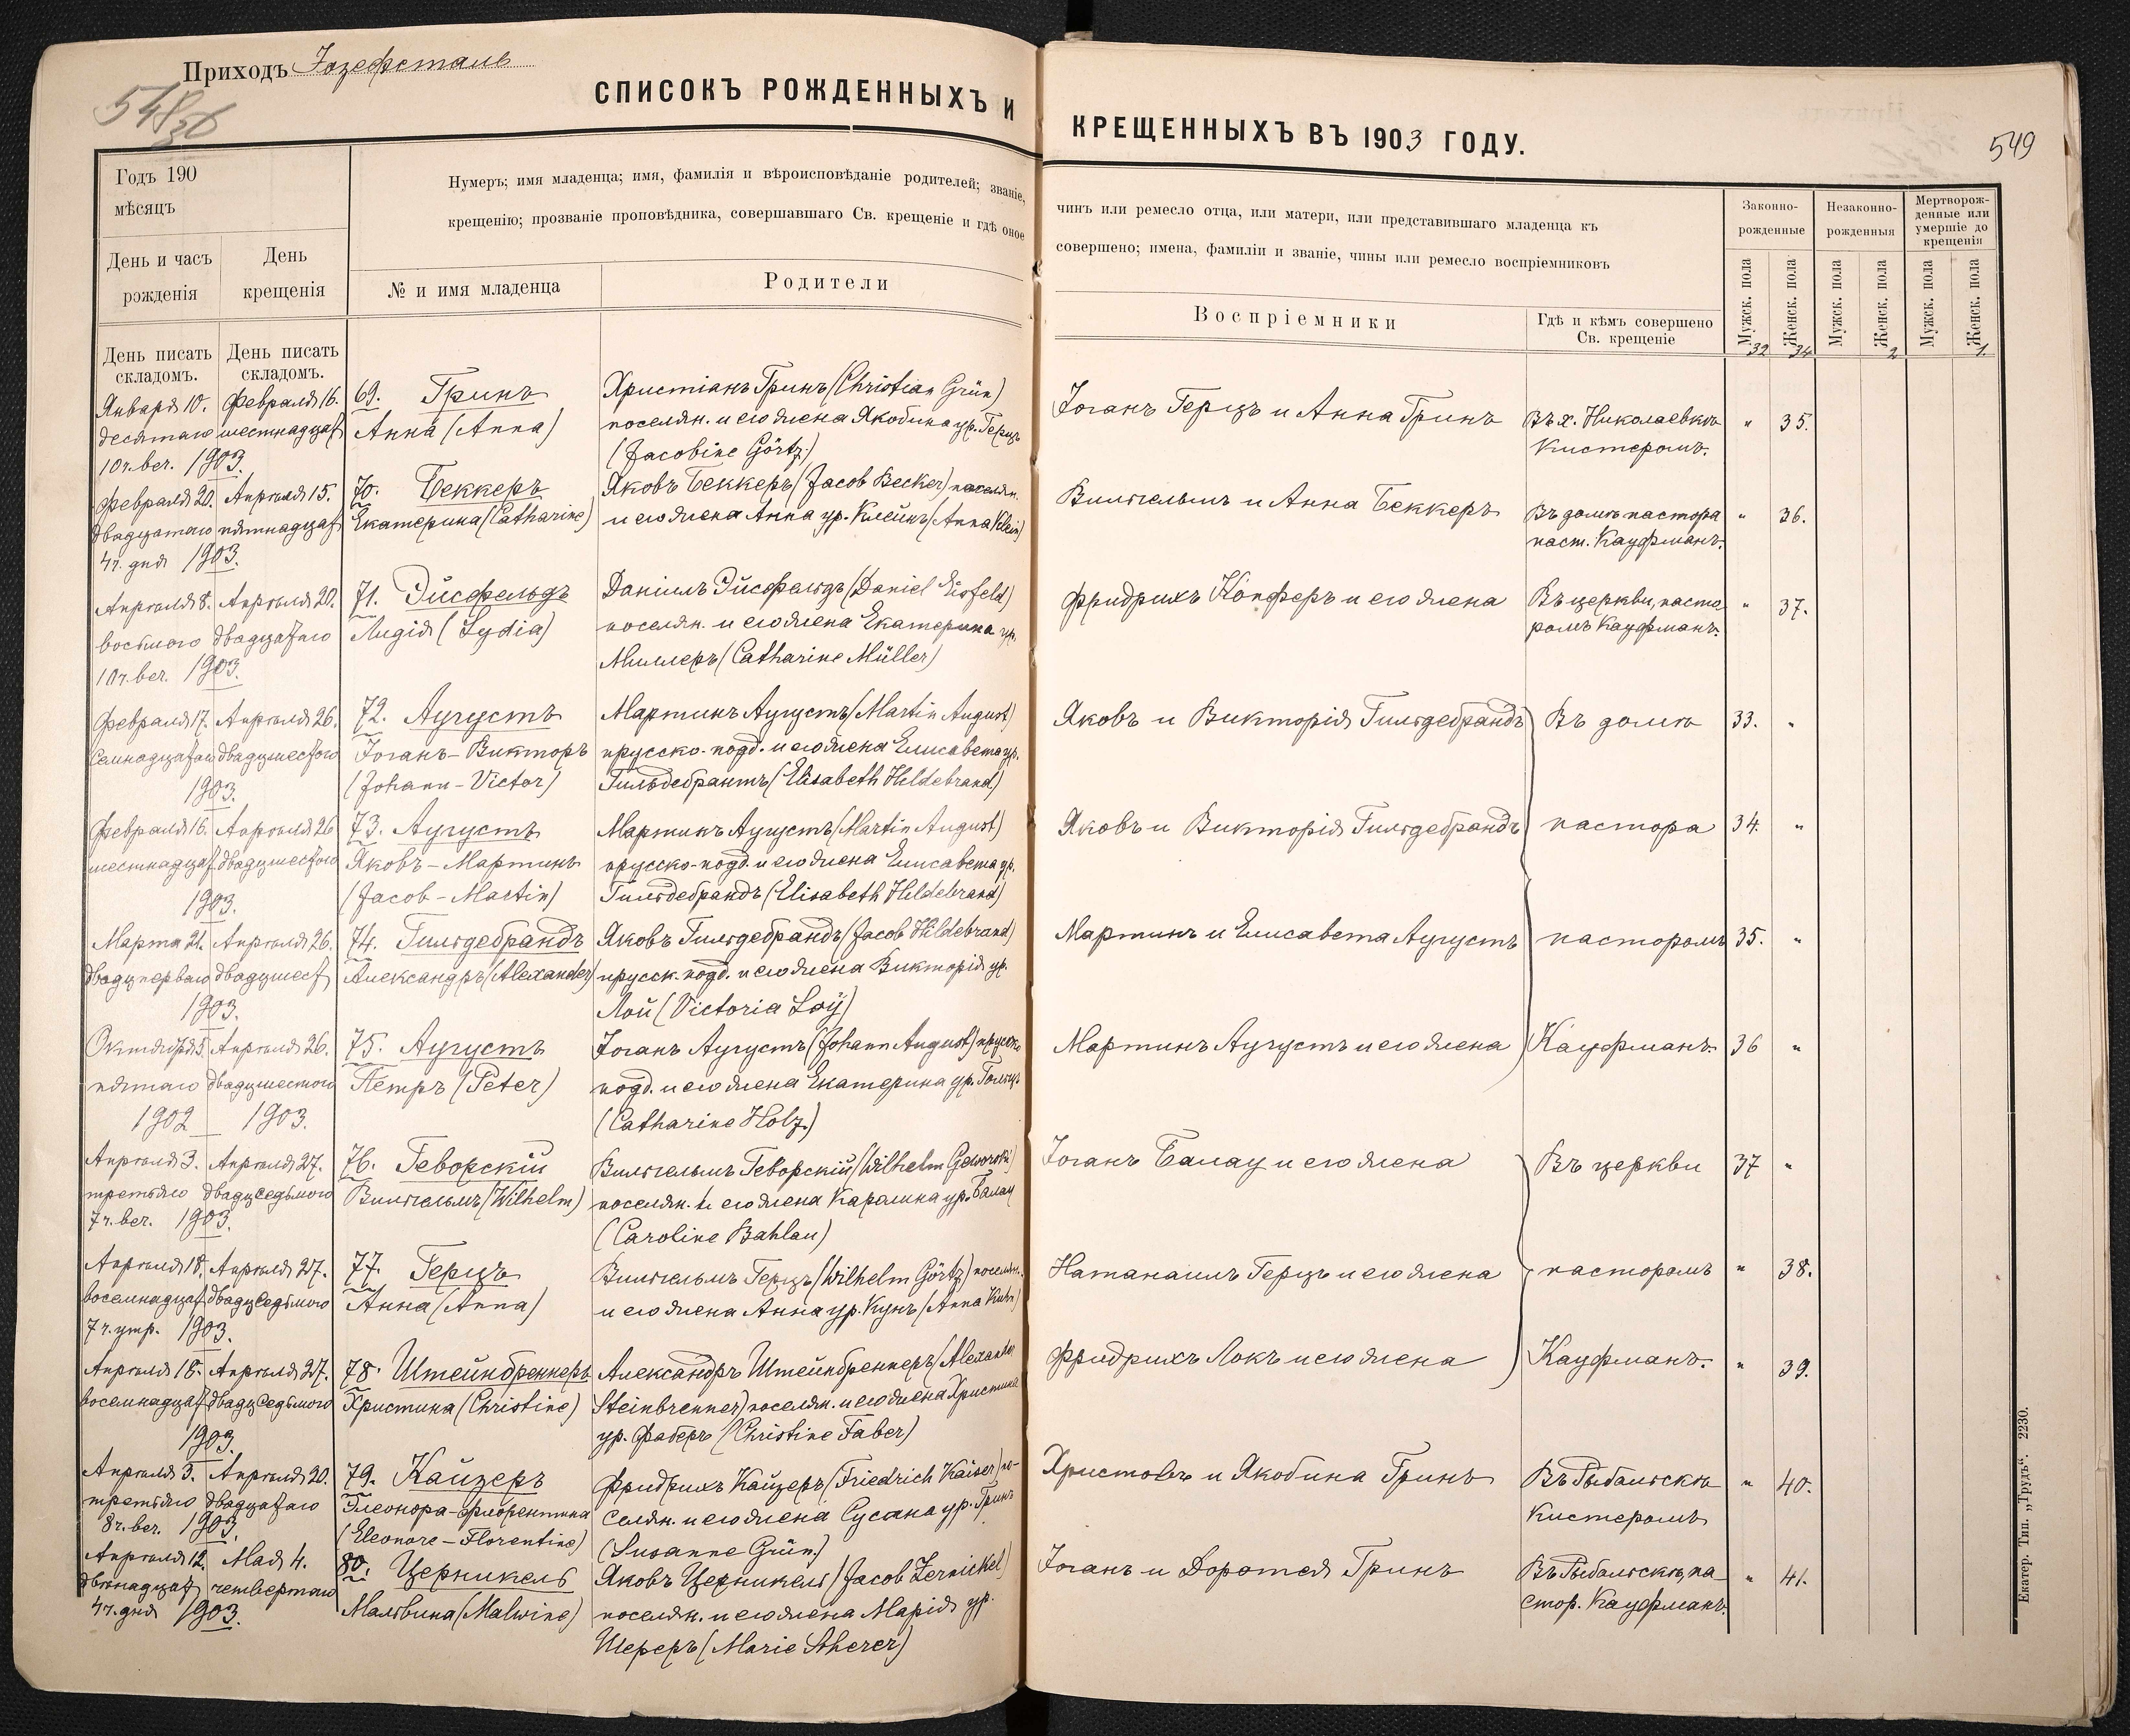 Приходъ Іозефсталь
548
СПИСОКЪ РОЖДЕННЫХЪ И
Годъ 190
мѣсяцъ
Нумеръ; имя младенца; имя, фамилія и вѣроисповѣданіе родителей; званіе,
крещенію; прозваніе проповѣдника, совершавшаго Св. крещеніе и гдѣ оное
День и часъ
рожденія
День
крещенія
№ и имя младенца
Родители
День писать
складомъ.
День писать
складомъ.
Января 10. Февраля 16.
десятаго шестнадцат
10 ч. веч. 1903.
69. Гринъ
Анна (Anna)
Христіанъ Гринъ (Christian Grün)
поселян. и его жена Якобина ур. Герцъ
(Jacobine Görtz.)
Февраля 20. Апрѣля 15.
двадцатаго пятнадцат
4 ч. дня 1903.
70. Беккеръ
Екатерина (Catharine)
Яковъ Беккеръ (Jacob Becker) поселян.
и его жена Анна ур. Клейнъ (Anna Klein)
Апрѣля 8. Апрѣля 20.
восьмого двадцатаго
10 ч. веч. 1903.
71. Эйсфельдъ
Лидія (Lydia)
Даніилъ Эйсфельдъ (Daniel Eisfeld)
поселян. и его жена Екатерина ур.
Миллеръ (Catharine Müller)
Февраля 17. Апрѣля 26.
Семнадцатаго двадцшестого
1903.
72. Августъ
Іоганъ-Викторъ
(Johann-Victor)
Мартинъ Августъ (Martin August)
прусско-подд. и его жена Елисавета ур.
Гильдебрантъ (Elisabeth Hildebrand)
Февраля 16. Апрѣля 26
шестнадцат двадцшестого
1903.
73. Августъ
Яковъ-Мартинъ
(Jacob-Martin)
Мартинъ Августъ (Martin August)
прусско-подд. и его жена Елисавета ур.
Гильдебрандъ (Elisabeth Hildebrand)
Марта 21. Апрѣля 26.
двадцперваго двадцшест
1903.
74. Гильдебрандъ
Александръ (Alexander)
Яковъ Гильдебрандъ (Jacob Hildebrand)
прусск. подд. и его жена Викторія ур.
Лой (Victoria Loÿ)
Октября 5. Апрѣля 26.
пятаго двадцшестого
1902 1903.
75. Августъ
Петръ (Peter)
Іоганъ Августъ (Johann August) прусско
подд. и его жена Екатерина ур. Гольцъ
(Catharine Holz.)
Апрѣля 3. Апрѣля 27.
третьяго двадцседьмого
7 ч. веч. 1903.
76. Геворскій
Вильгельмъ (Wilhelm)
Вильгельмъ Геворскій (Wilhelm Geworski)
поселян. и его жена Каролина ур. Балау
(Caroline Bahlau)
Апрѣля 18. Апрѣля 27.
восемнадцат двадцседьмого
7 ч. утр. 1903.
77. Герцъ
Анна (Anna)
Вильгельмъ Герцъ (Wilhelm Görtz) поселян.
и его жена Анна ур. Кунъ (Anna Kuhn)
Апрѣля 18. Апрѣля 27.
восемнадцат двадцседьмого
1903.
78. Штейнбреннеръ
Христина (Christine)
Александръ Штейнбреннеръ (Alexander
Steinbrenner) поселян. и его жена Христина
ур. Фаберъ (Christine Faber)
Апрѣля 3. Апрѣля 20.
третьяго двадцатаго
8 ч. веч. 1903.
79. Кайзеръ
Элеонора-Флорентина
(Eleonore-Florentine)
Фридрихъ Кайзеръ (Friedrich Kaiser) по-
селян. и его жена Сусана ур. Гринъ
(Susanne Grün.)
Апрѣля 12. Мая 4.
двѣнадцат четвертаго
4 ч. дня 1903.
80. Церникель
Мальвина (Malwine)
Яковъ Церникель (Jacob Zernickel)
поселян. и его жена Марія ур.
Шереръ (Marie Scherer)
КРЕЩЕННЫХЪ ВЪ 1903 ГОДУ.
549
чинъ или ремесло отца, или матери, или представившаго младенца къ
совершено; имена, фамиліи и званіе, чины или ремесло воспріемниковъ
Воспріемники
Гдѣ и кѣмъ совершено
Св. крещеніе
Законно-
рожденные
Незаконно-
рожденныя
Мертворож-
денные или
умершіе до
крещенія
Мужск. пола
Женск. пола
Мужск. пола
Женск. пола
Мужск. пола
Женск. пола
32 34 2 1
Іоганъ Герцъ и Анна Гринъ
Въ х. Николаевкѣ
Кистеромъ.
" 35.
Вильгельмъ и Анна Беккеръ
Въ домѣ пастора
паст. Кауфманъ.
" 36.
Фридрихъ Кöпферъ и его жена
Въ церкви, пасто
ромъ Кауфманъ.
" 37.
Яковъ и Викторія Гильдебрандъ
Въ домѣ
33. "
Яковъ и Викторія Гильдебрандъ
пастора
34. "
Мартинъ и Елисавета Августъ
пасторомъ
35. "
Мартинъ Августъ и его жена
Кауфманъ.
36 "
Іоганъ Балау и его жена
Въ церкви
37 "
Натанаилъ Герцъ и его жена
пасторомъ
" 38.
Фридрихъ Локъ и его жена
Кауфманъ.
" 39.
Христофъ и Якобина Гринъ
Въ Рыбальскѣ
Кистеромъ
" 40.
Іоганъ и Доротея Гринъ
Въ Рыбальскѣ, па
стор. Кауфманъ.
" 41.
Екатер. Тип. „Трудъ“. 2230.